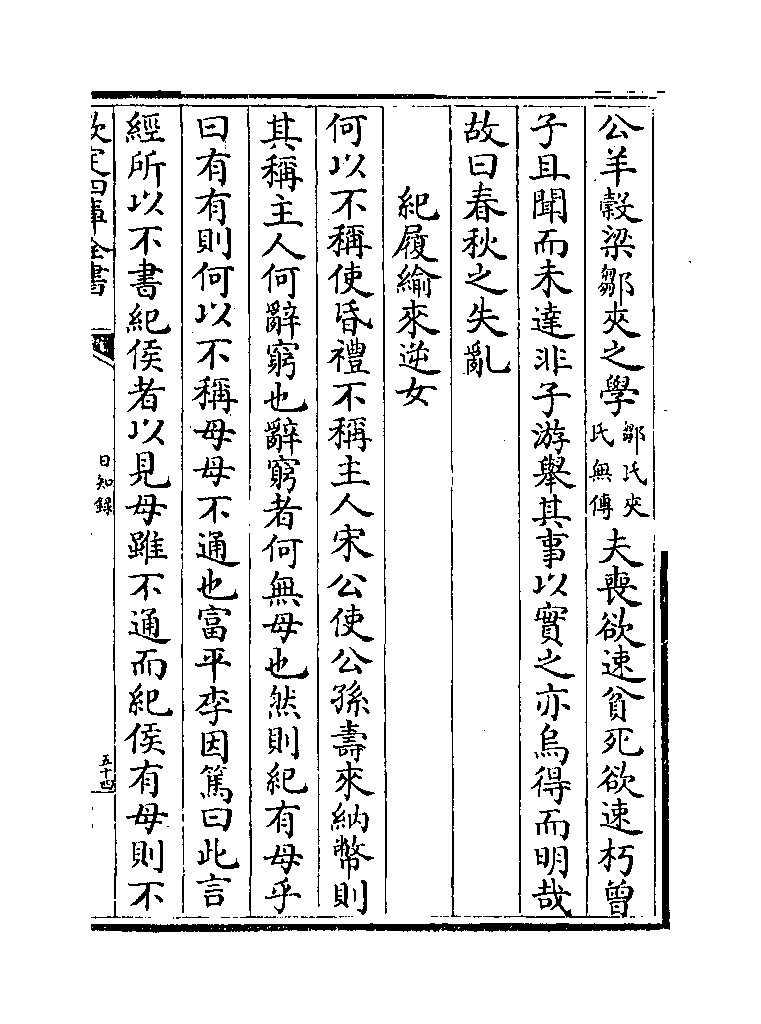 公羊穀梁鄒夾之學鄒氏夾氏無傳夫喪欲速貧死欲速朽曾
子且聞而未達非子游舉其事以實之亦烏得而明哉
故曰春秋之失亂
紀履緰來逆女
何以不稱使昏禮不稱主人宋公使公孫壽來納幣則
其稱主人何辭窮也辭窮者何無母也然則紀有母乎
曰有有則何以不稱母母不通也富平李因篤曰此言
經所以不書紀侯者以見母雖不通而紀侯有母則不
欽定四庫全書
日知錄
五十四